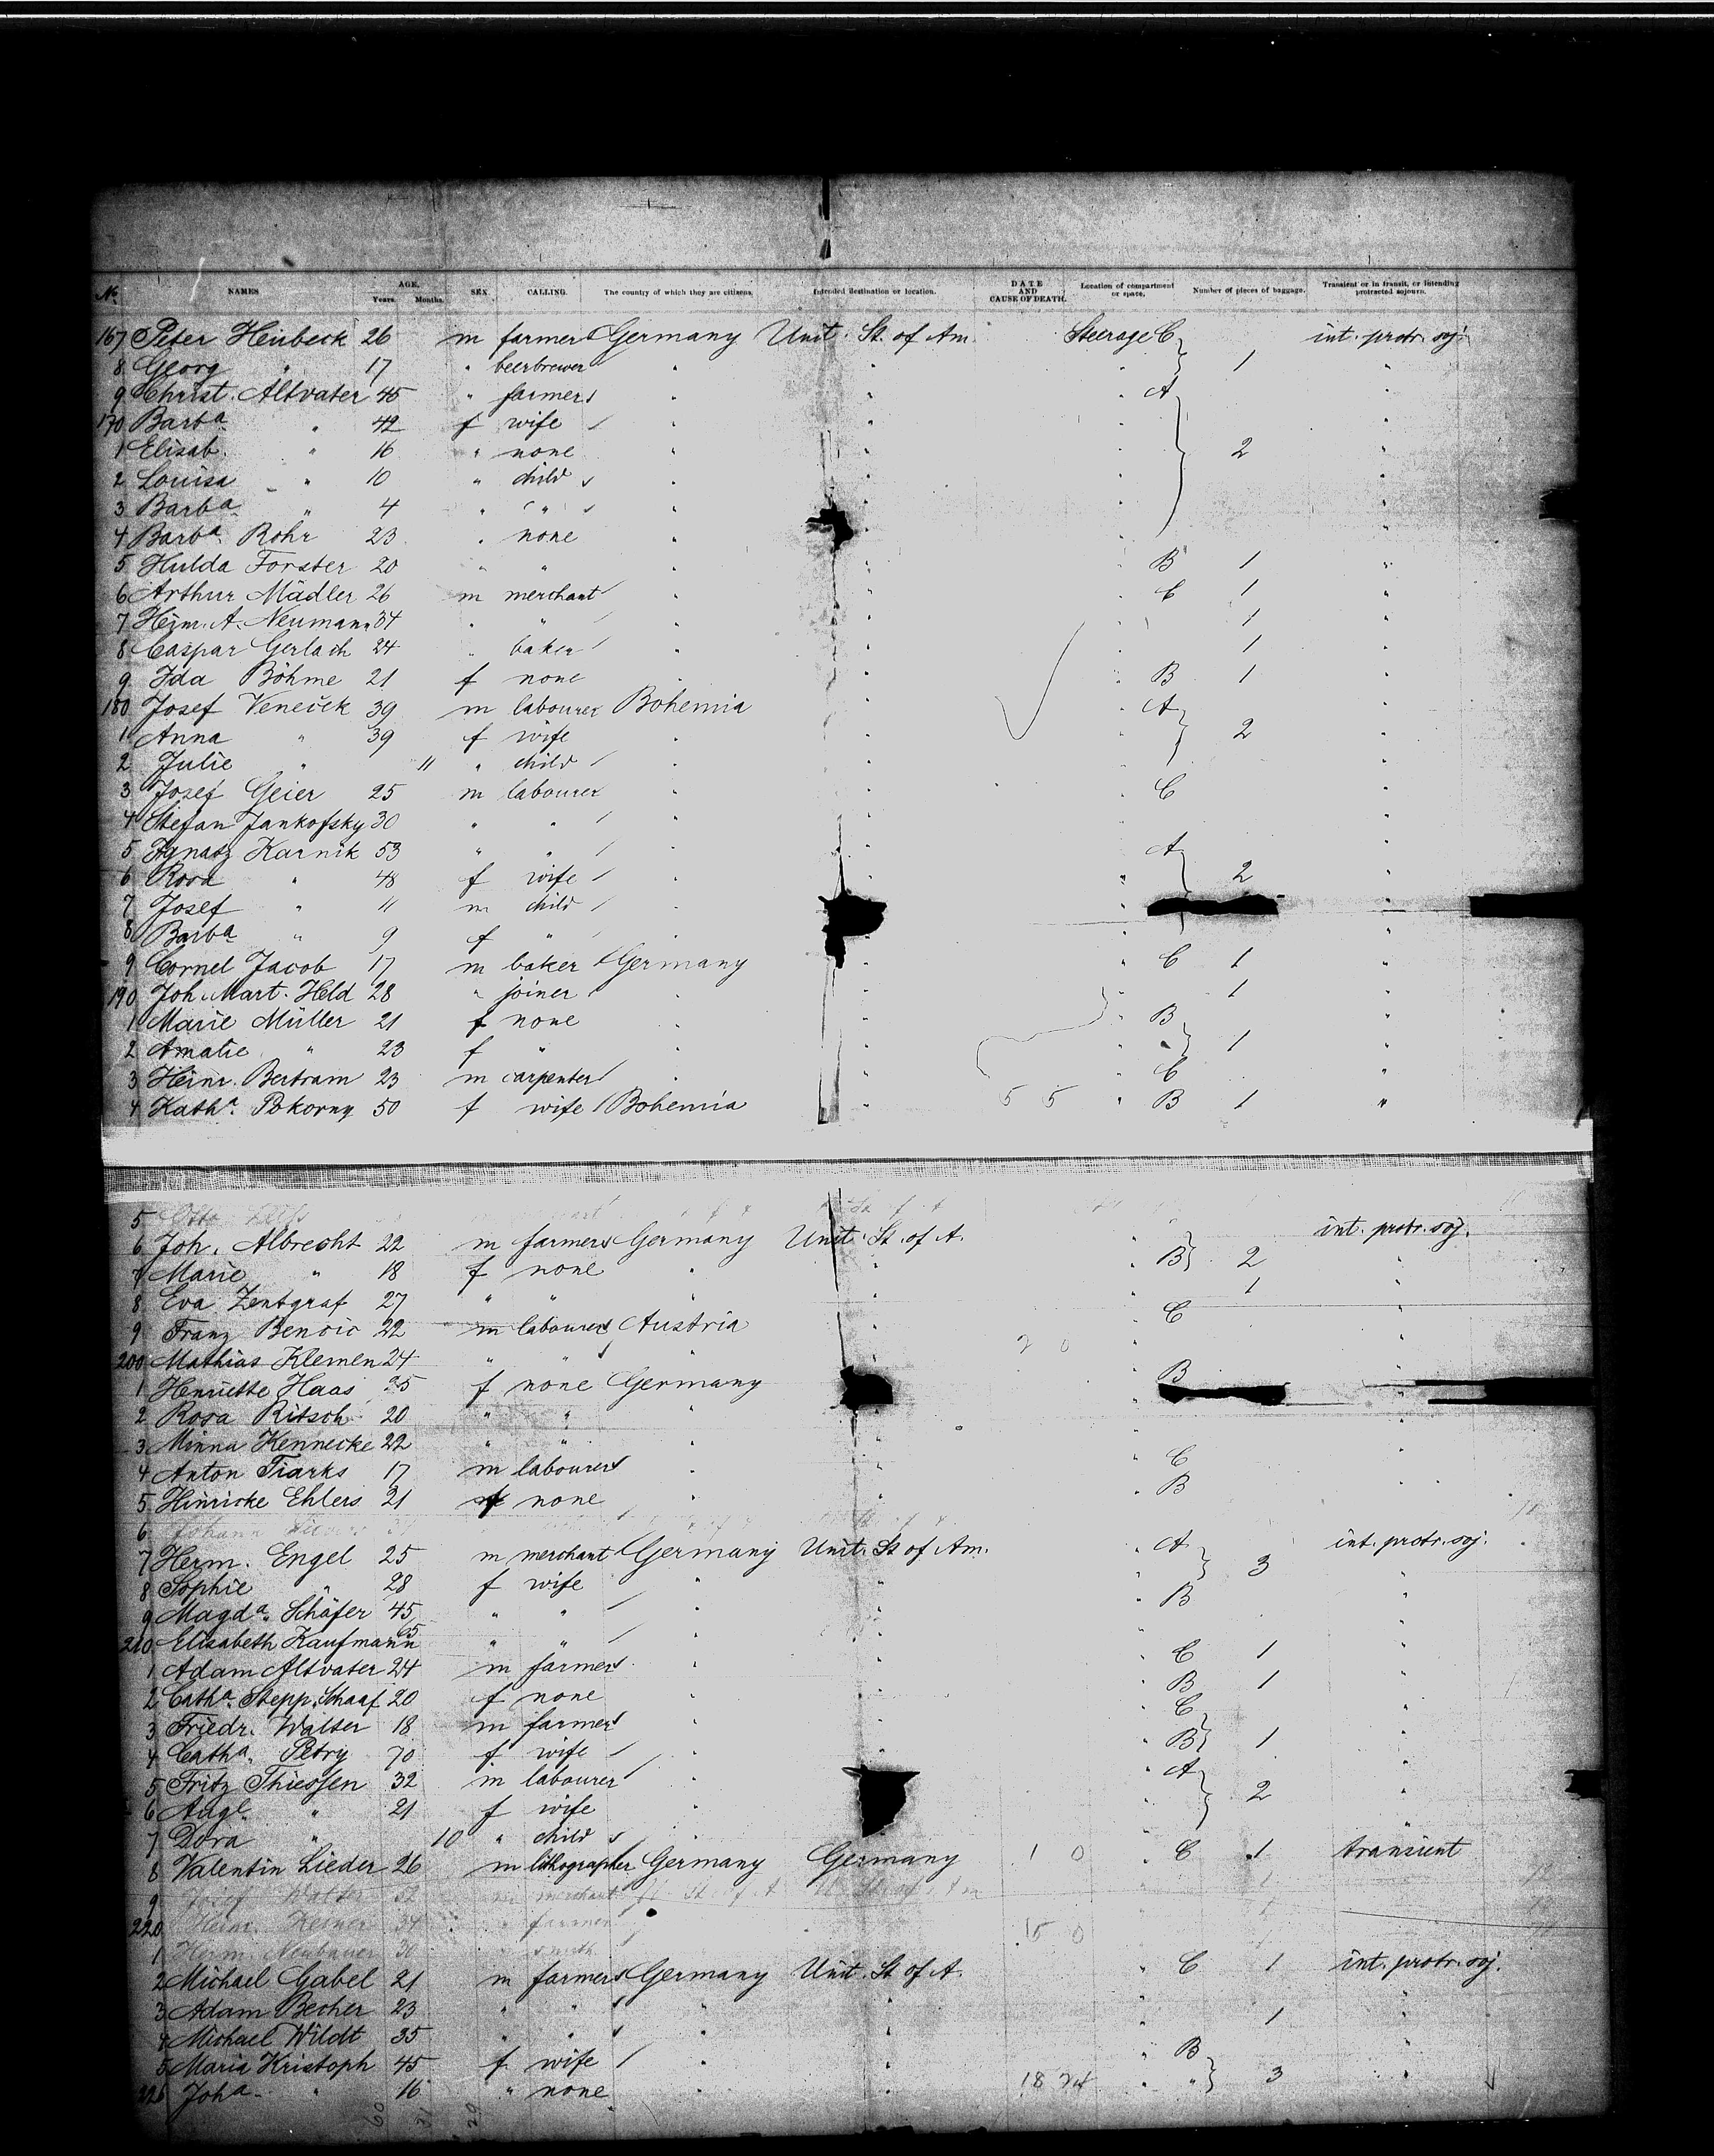 No. NAMES AGE. Years. Months. SEX. CALLING. The country of which they are citizens. Intended destination or location. DATE AND CAUSE OF DEATH. Location of compartment or space. Number of pieces of baggage. Transient or in transit, or intending protracted sojourn.
167 Peter Heubeck 26 m farmer Germany Unit. St. of Am. Steerage C int. protr. soj.
8 Georg " 17 " beerbrewer " " " 1 "
9 Christ. Altvater 45 " farmer " " " A "
170 Barba. " 42 f wife " " " "
1 Elisab. " 16 " none " " " 2 "
2 Louisa " 10 " child " " " "
3 Barba. " 4 " " " " " "
4 Barba. Rohr 23 " none " " " "
5 Hulda Forster 20 " " " " " B 1 "
6 Arthur Mädler 26 m merchant " " " C 1 "
7 Herm. A. Neumann 34 " " " " " 1 "
8 Caspar Gerlach 24 " baker " " " 1 "
9 Ida Böhme 21 f none " " " B 1 "
180 Josef Veneček 39 m labourer Bohemia " " A "
1 Anna " 39 f wife " " " 2 "
2 Julie " 11 " child " " " "
3 Josef Geier 25 m labourer " " " C "
4 Stefan Jankofsky 30 " " " " " "
5 Ignatz Karnik 53 " " " " " A "
6 Rosa " 48 f wife " " " 2 "
7 Josef " 11 m child " "
8 Barba. " 9 f " " " "
9 Cornel Jacob 17 m baker Germany " " C 1 "
190 Joh. Mart. Held 28 " joiner " " " 1 "
1 Marie Müller 21 f none " " " B "
2 Amalie " 23 f " " " " " 1 "
3 Heinr. Bertram 23 m carpenter " " " C "
4 Katha. Pokorny 50 f wife Bohemia " 5 5 " B 1 "
5 Otto
6 Joh. Albrecht 22 m farmer Germany Unit. St. of A. " int. protr. soj.
7 Marie " 18 f none " " " B 2 "
8 Eva Zentgraf 27 " " " " " 1 "
9 Franz Bencic 22 m labourer Austria " " C "
200 Mathias Klemen 24 " " " " 2 0 " "
1 Henriette Haas 25 f none Germany B "
2 Rosa Ritsch 20 " " " " " "
3 Minna Kennecke 22 " " " " " "
4 Anton Tiarks 17 m labourer " " " C "
5 Hinricke Ehlers 21 f none " " " B "
6 Johann
7 Herm. Engel 25 m merchant Germany Unit. St. of Am. " A int. protr. soj.
8 Sophie " 28 f wife " " " 3 "
9 Magda. Schäfer 45 " " " " " B "
210 Elisabeth Kaufmann 65 " " " " " "
1 Adam Altvater 24 m farmer " " " C 1 "
2 Catha. Stepp. Schaaf 20 f none " " " B 1 "
3 Friedr. Walter 18 m farmer " " " C "
4 Catha. Petry 70 f wife " " " B 1 "
5 Fritz Thiessen 32 m labourer " " A "
6 Augl. " 21 f wife " " 2 "
7 Dora " 10 " child " " "
8 Valentin Lieder 26 m lithographer Germany Germany 1 0 " C 1 transient
9 Josef Walter 32 m merchant U. St. of A U. St. of Am 1
220 Heinr. 34 " farmer 15 0 1
1 Herm. Neubauer 30 " smith
2 Michael Gabel 21 m farmer Germany Unit. St. of A. " C 1 int. protr. soj.
3 Adam Becher 23 " " " " " 1 "
4 Michael Wildt 35 " " " " " "
5 Maria Kristoph 45 f wife " " " B "
226 Joha. " 16 " none " " 18 24 " " 3 "
60 31 29